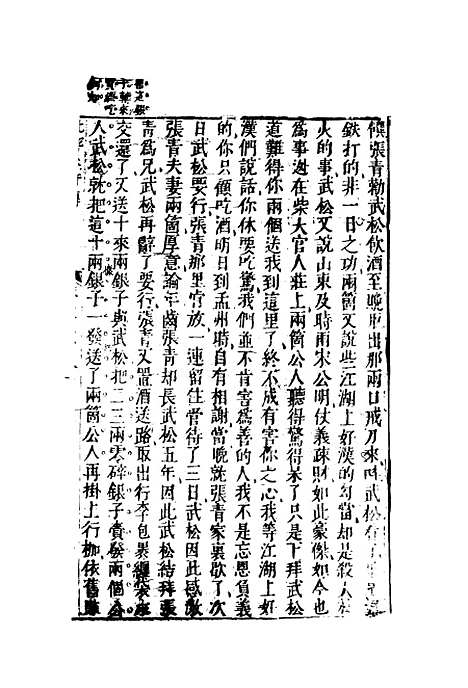 候張青勸武松飲酒至晚取出那兩口戒刀來叫武松看了
鉄打的非一日之功兩箇又說些江湖上好漢的勾當却是殺人放
火的事武松又說山東及時雨宋公明仗義疎財如此豪傑如今也
爲事逃在柴大官人莊上兩箇公人聽得驚得呆了只是下拜武松
道難得你兩個送我到這里了終不成有害你之心我等江湖上好
漢們說話你休要吃驚我們並不肯害爲善的人我不是忘恩負義
的你只顧吃酒明日到孟州時自有相謝當晚就張青家裏歇了次
日武松要行張青那里宜放一連留住管待了三日武松因此感激
張青夫妻兩箇厚意論年齒張青却長武松五年因此武松結拜張
青爲兄武松再辭了要行張青又置酒送路取出行李包裹纏袋來
交還了又送十來兩銀子與武松把二三兩零碎銀子賫發兩個公
人武松就把這十兩銀子一發送了兩箇公人再掛上行枷依舊